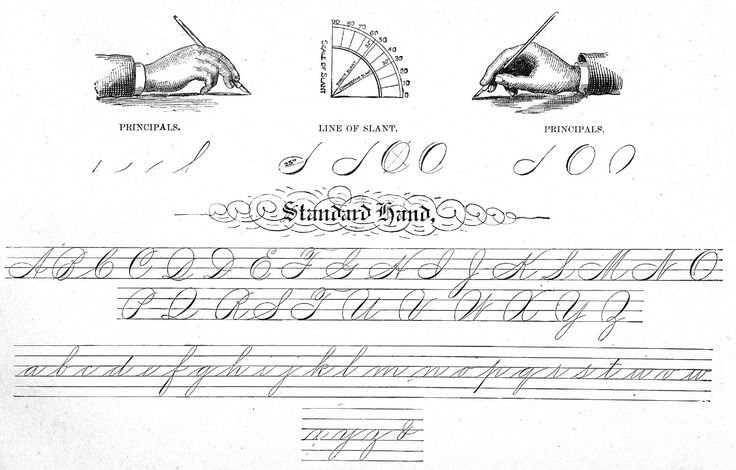 90 80 70 60 50 40 30 20 10 0
SCALE OF SLANT
PRINCIPALS. LINE OF SLANT. PRINCIPALS.
Standard Hand.
A B C C D D E F G H I J K L M N O
P Q R S T U V W X Y Z
a b c d e f g h i j k l m n o p q r s t u v w
x y z &